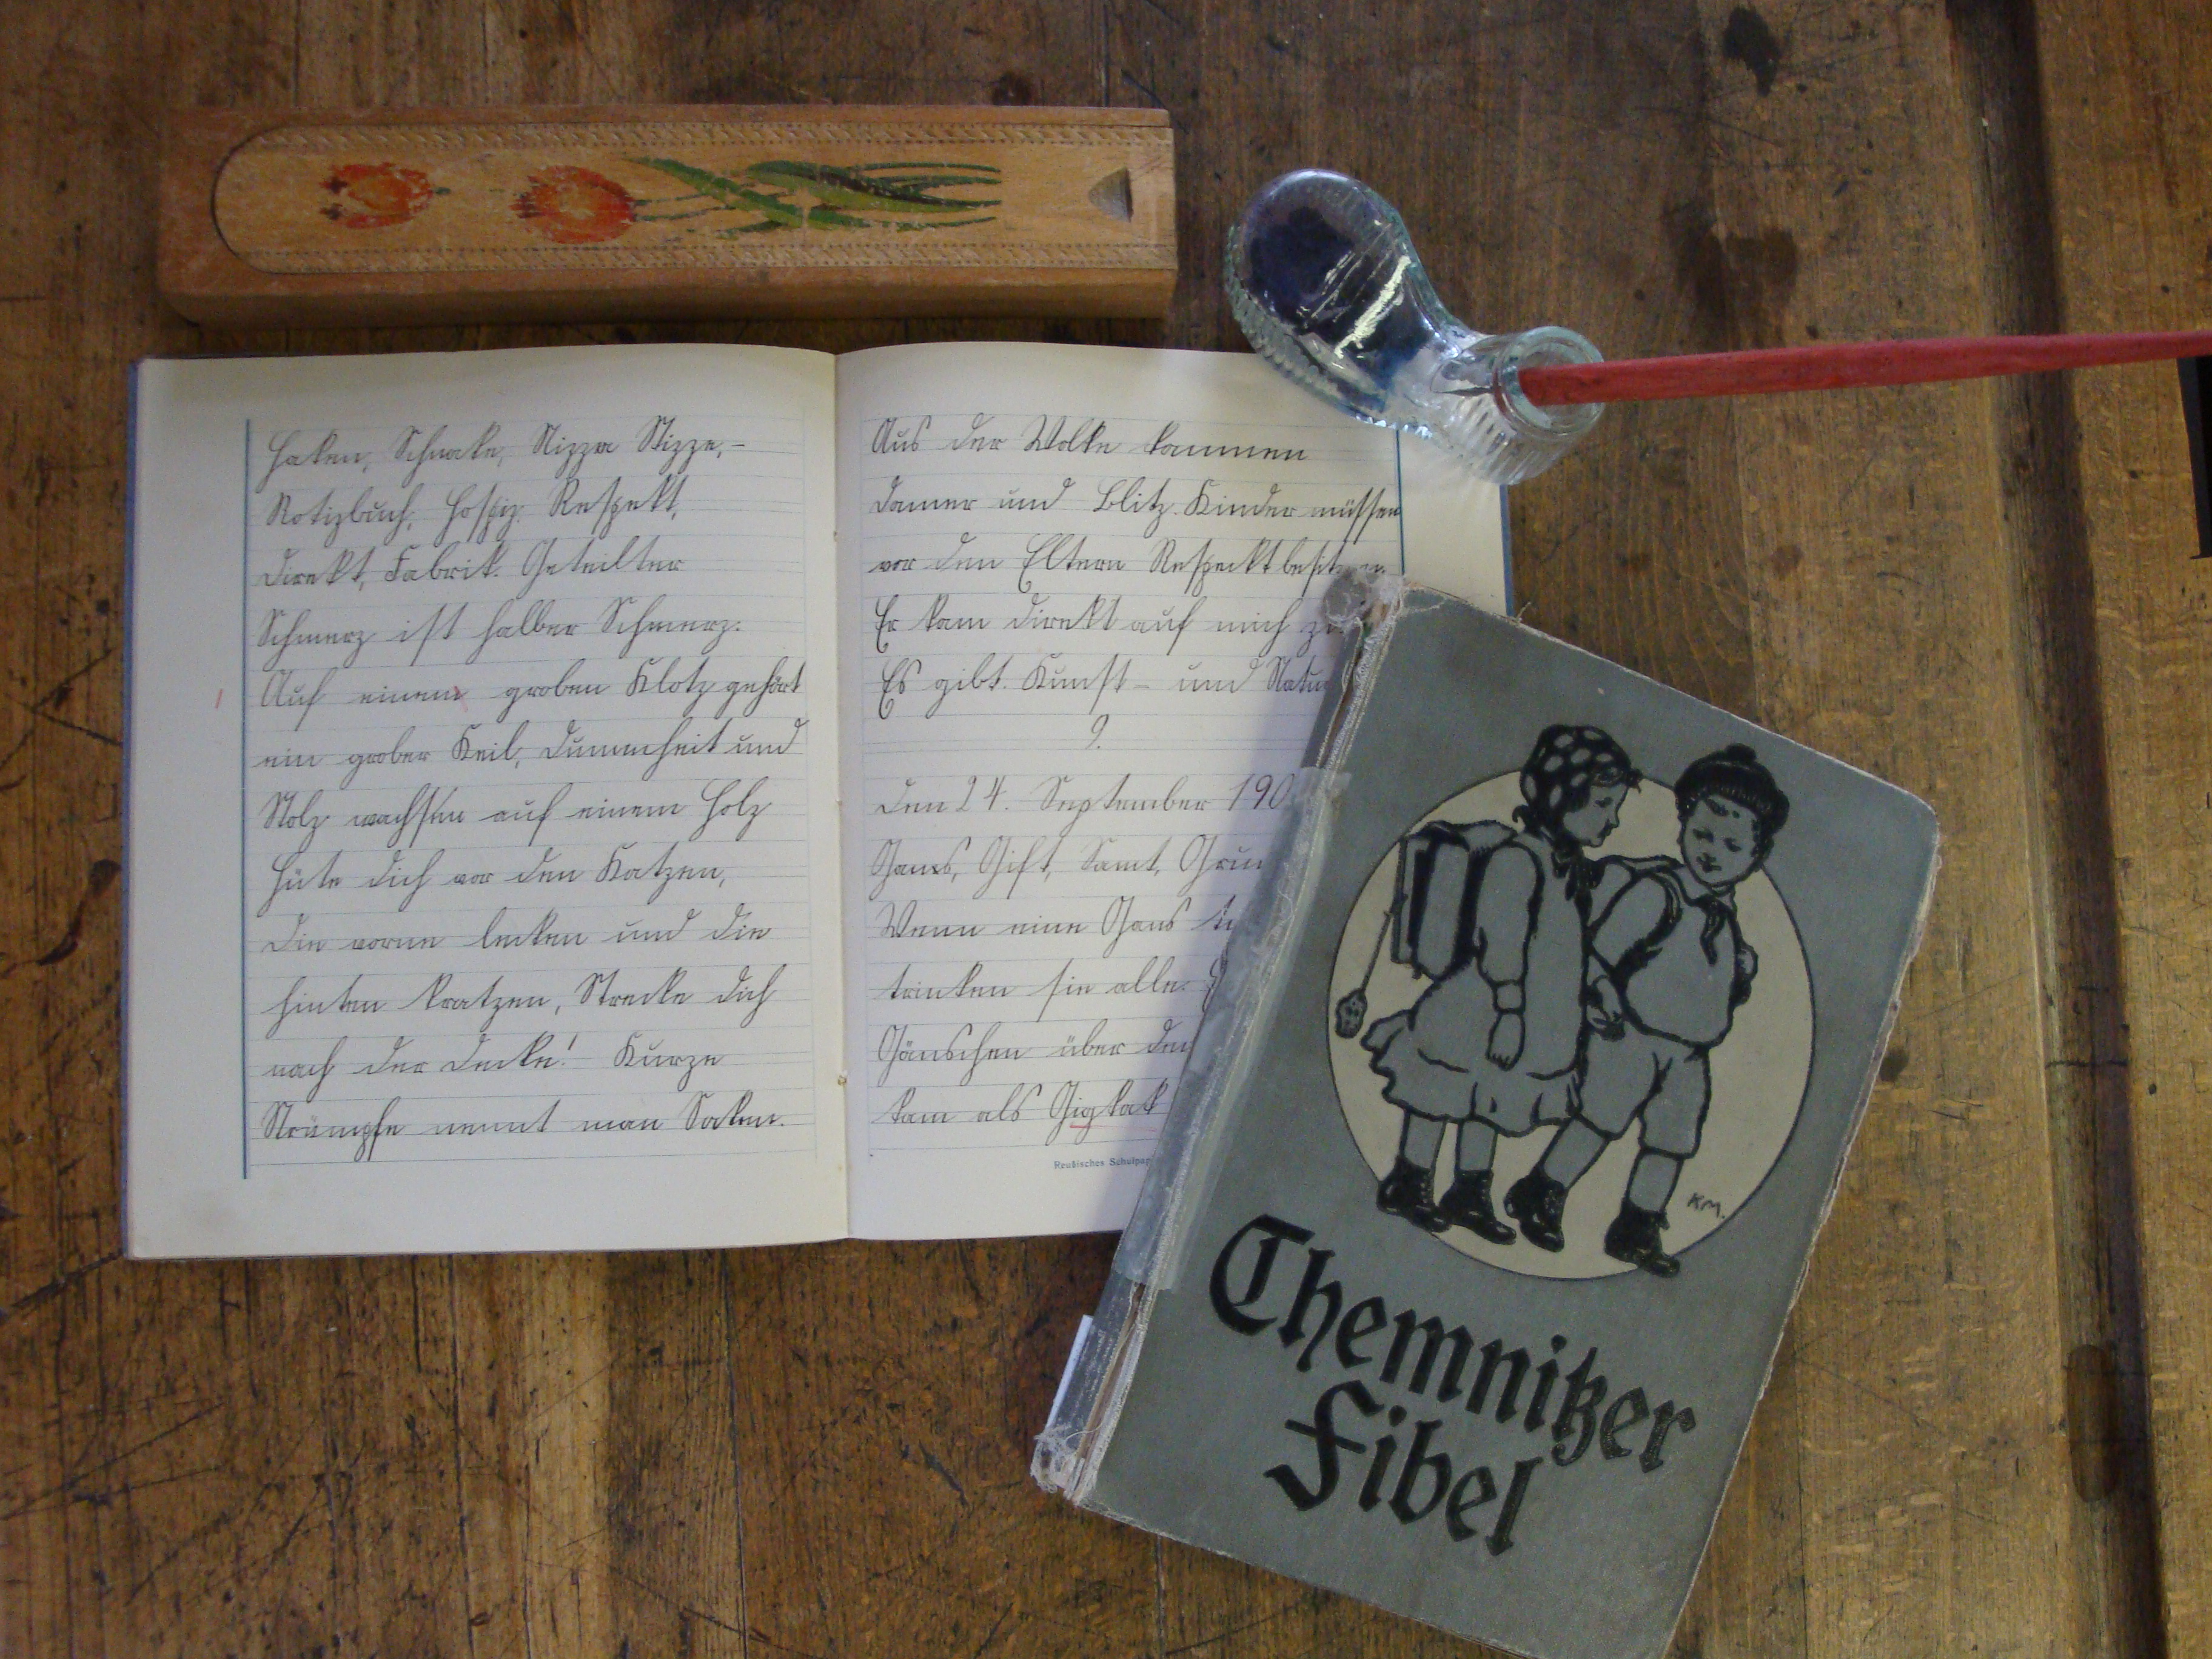 Haken, Schnake, Nizza Skizze, –
Notizbuch, Hospiz. Respekt,
direkt, Fabrik. Geteilter
Schmerz ist halber Schmerz.
Auf einem groben Klotz gehört
ein grober Keil, Dummheit und
Stolz wachsen auf einem Holz
Hüte dich vor den Katzen,
die vorne lecken und die
hinten kratzen, Strecke dich
nach der Decke! Kurze
Strümpfe nennt man Soken.
Aus der Wolke kammen
Donner und Blitz. Kinder müssen
vor den Eltern Respeckt
Er kam direkt auf mich
Es gibt Kunst- und
9.
den 24. September 190
Gans, Gift, Samt,
Wenn eine Gans
trinken sie alle.
Gänschen über den
kam als Gigkak
Reußisches
KM.
Chemnitzer
Fibel